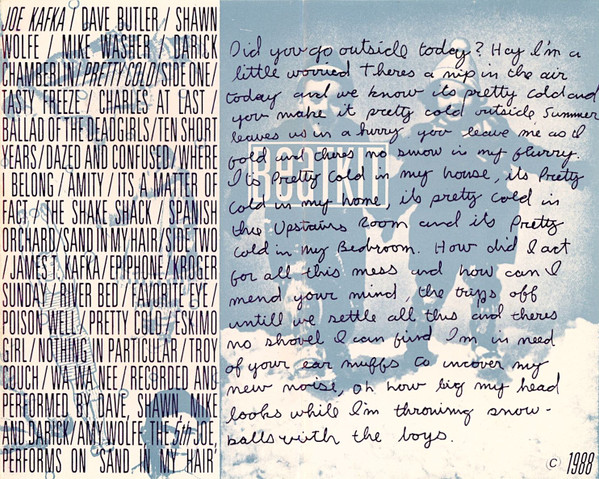 JOE KAFKA / DAVE BUTLER / SHAWN
WOLFE / MIKE WASHER / DARICK
CHAMBERLIN / PRETTY COLD / SIDE ONE /
TASTY FREEZE / CHARLES AT LAST /
BALLAD OF THE DEADGIRLS / TEN SHORT
YEARS / DAZED AND CONFUSED / WHERE
I BELONG / AMITY / ITS A MATTER OF
FACT / THE SHAKE SHACK / SPANISH
ORCHARD / SAND IN MY HAIR / SIDE TWO
/ JAMES T. KAFKA / EPIPHONE / KROGER
SUNDAY / RIVER BED / FAVORITE EYE /
POISON WELL / PRETTY COLD / ESKIMO
GIRL / NOTHING IN PARTICULAR / TROY
COUCH / WA WA NEE / RECORDED AND
PERFORMED BY DAVE, SHAWN, MIKE
AND DARICK / AMY WOLFE, THE 5th JOE,
PERFORMS ON 'SAND IN MY HAIR'
Did you go outside today? Hay I'm a
little worried Theres a nip in the air
today and we know its pretty cold and
you make it pretty cold outside Summer
leaves us in a hurry you leave me as I
fold and theres no snow in my flurry.
Its Pretty Cold in my house, its Pretty
Cold in my home, its pretty cold in
the Upstairs Room and its Pretty
Cold in my Bedroom. How did I act
for all this mess and how can I
mend your mind, the trips off
untill we settle all this and theres
no shovel I can find I'm in need
of your ear muffs to uncover my
new noise, oh how big my head
looks while I'm throwing snow-
balls with the boys.
ROOTKIT
© 1988